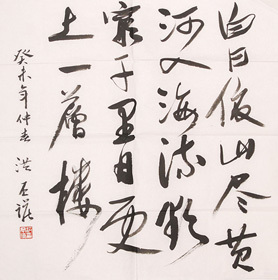 白日依山尽黄
河入海流欲
穷千里目更
上一层楼
癸未年仲春